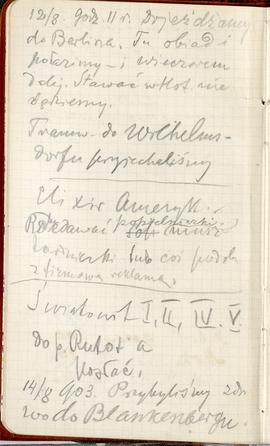 12/8 godz 11 r. Dojeżdżamy
do Berlina. Tu obiad i
położymy – i wieczorem
dalej. Stawać w Kot. nie
będziemy.
Tramw. do Wilhelms-
dorfu przyjechaliśmy
Elixir Ameryk.
Rozdawać popielniczki
lub coś podob
z firmową reklamą.
Światowit I, II, IV. V.
do p. Rutot a
posłać.
14/8 903. Przybyliśmy zdr
wo do Blankenbergu.